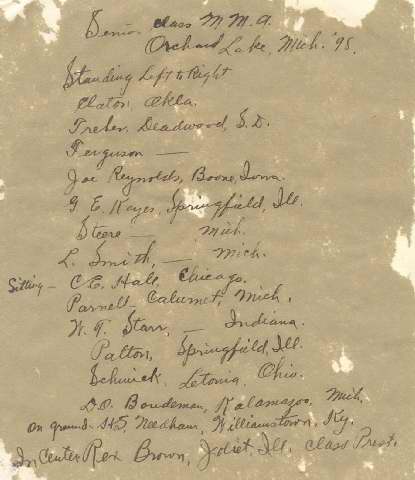 Senior class M.M.A.
Orchard Lake, Mich. '95.
Standing Left to Right
Claton, Okla.
Treber, Deadwood, S.D.
Ferguson —
Joe Reynolds, Boone, Iowa.
G. E. Kayes, Springfield, Ill.
Steere — Mich.
L. Smith, — Mich.
Sitting — C. E. Hall, Chicago.
Parnell Calumet, Mich.
W. T. Starr, — Indiana.
Patton, Springfield, Ill.
Schnick, Letonia, Ohio.
D. O. Boudeman, Kalamazoo, Mich.
on ground - H.S. Needham, Williamstown, Ky.
In Center Rex Brown, Joliet, Ill. Class Prest.